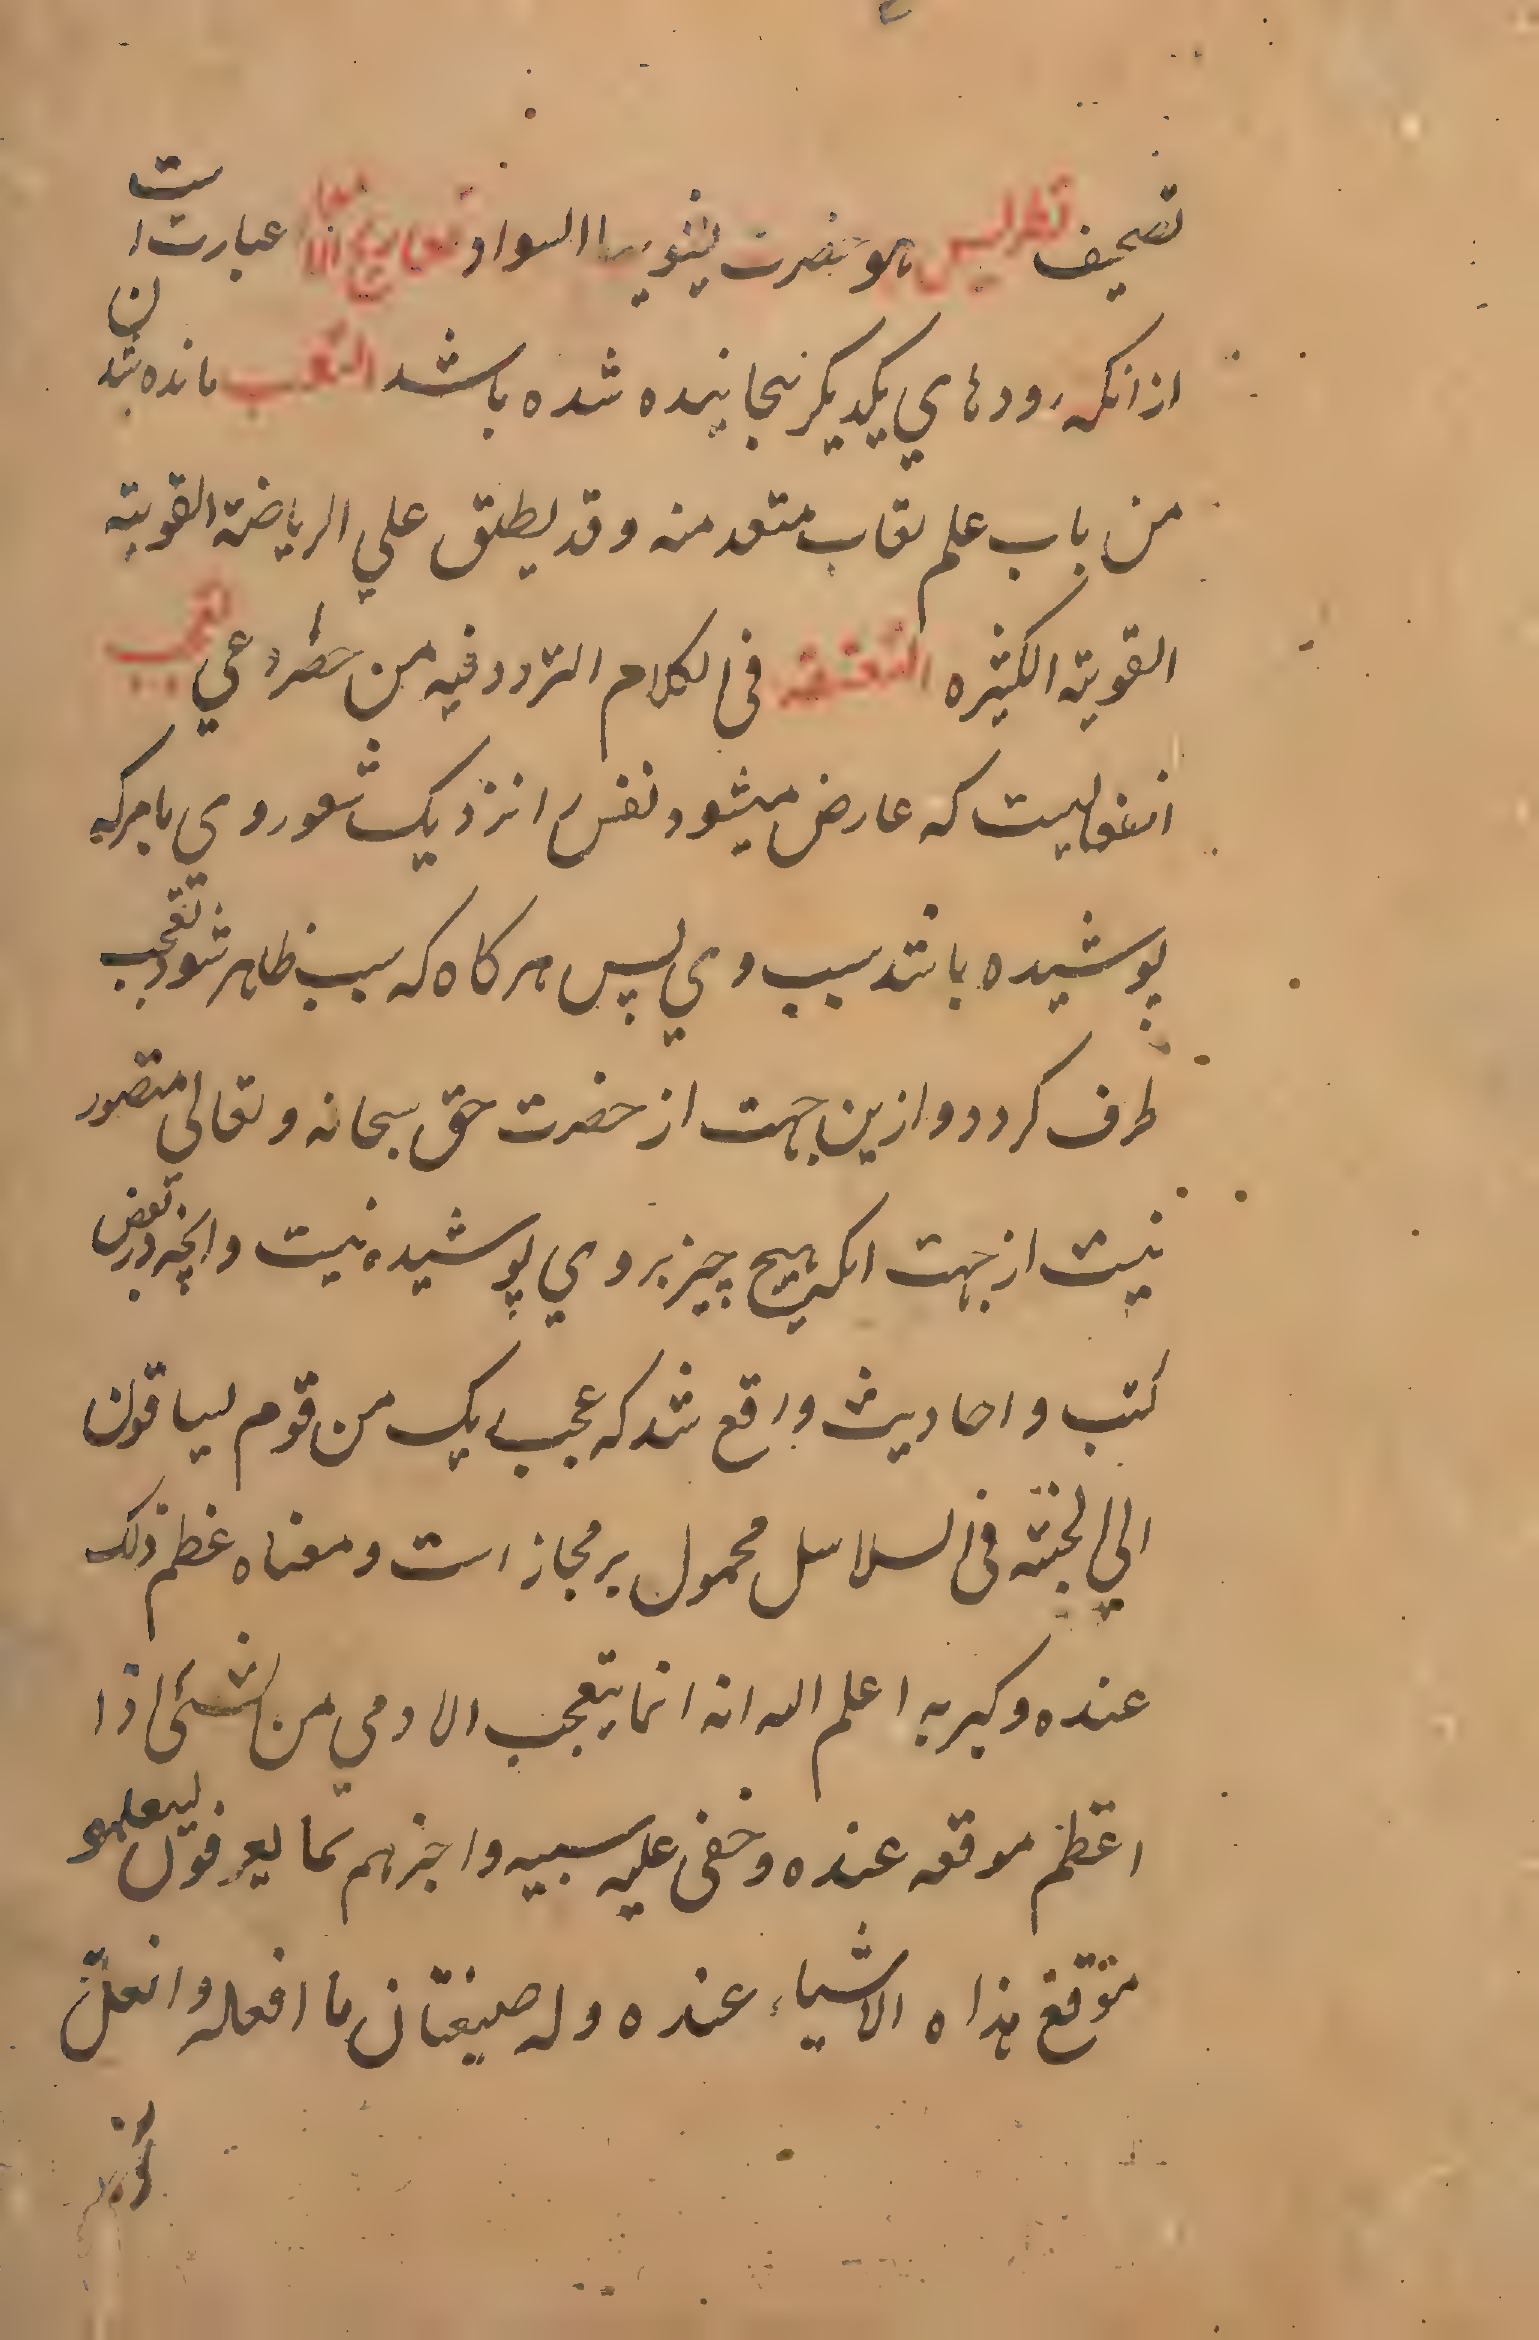 تصحیف تطریس هو حضرت ینویها السواد تعاریج عبارت است
از انکه رودهای یکدیکر نجانیده شده باشد التعب مانده شدن
من باب علم تعاب متعد منه و قد یطلق علی الریاضة القویته
القویته الکثیره التعتعه فی الکلام التردد فیه من حصر و عی تعجب
انفعالیست که عارض میشود نفس را نزدیک شعور وی بامرکه
پوشیده باشد سبب وی پس هرکاه که سبب ظاهر شود تعجب بر
طرف کردد و ازین جهت از حضرت حق سبحانه و تعالی متصور
نیست از جهت انکه هیچ چیز بروی پوشیده نیست و انچه در بعض
کتب و احادیث واقع شد که عجب ربک من قوم یساقون
الی الجنته فی السلاسل محمول بر مجاز است و معناه عظم ذلک
عنده و کبر به اعلم الله انه انما یتعجب الادمی من الشئی اذا
اعظم موقعه عنده و خفی علیه سببه و اخبرهم بما یعرفون لیعلمو
موقع هذاه الاشیاء عنده و له صیغتان ما افعله و افعل